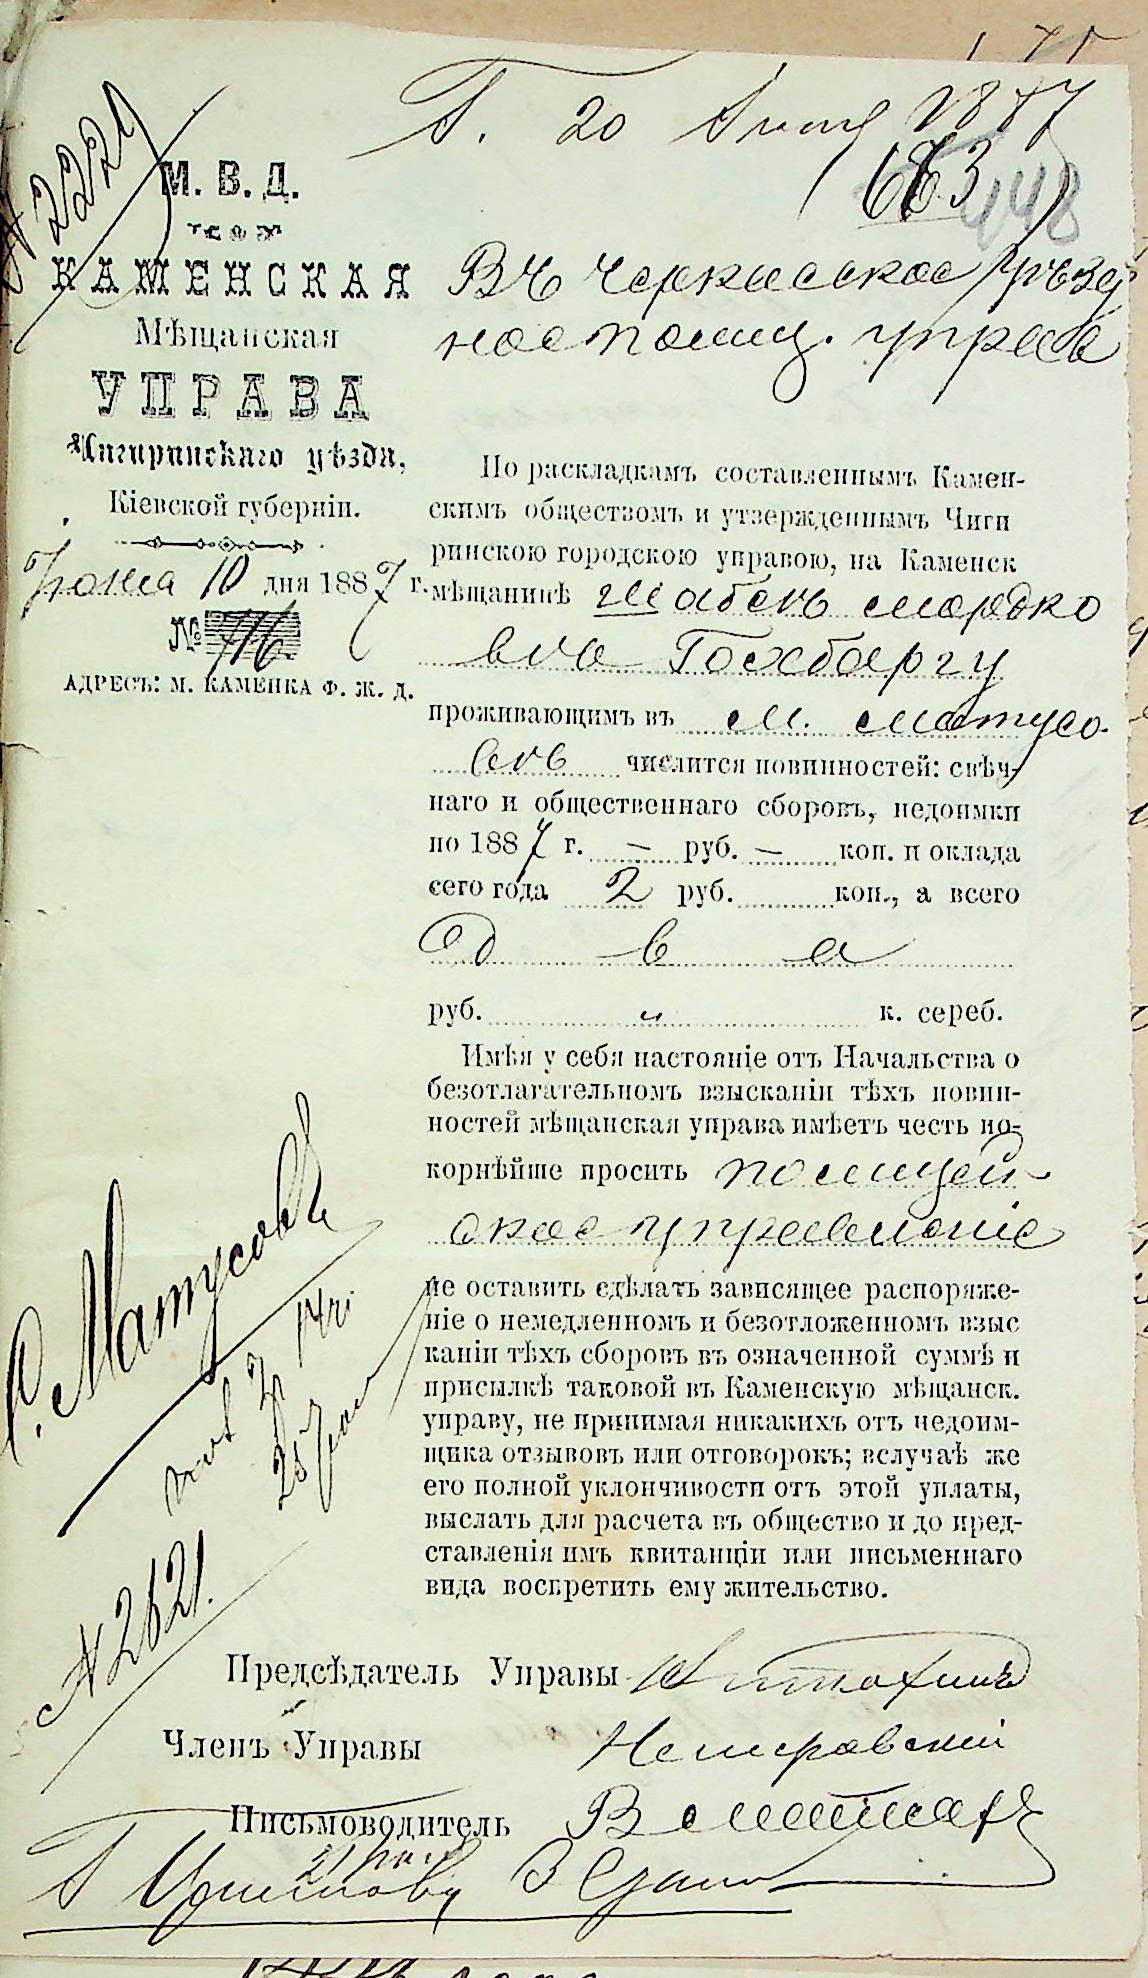 № 2229
П. 20 Июня 1887
448
М. В. Д.
КАМЕНСКАЯ
Мѣщанская
УПРАВА
Чигиринскаго уѣзда,
Кіевской губерніи.
Іюня 10 дня 1887 г.
№ 716
АДРЕСЪ: М. КАМЕНКА Ф. Ж. Д.
Въ Черкасское Уѣзд
ное полиц. управ
По раскладкамъ составленнымъ Камен-
скимъ обществомъ и утвержденнымъ Чиги
ринскою городскою управою, на Каменск
мѣщанинѣ Шабсѣ Мордко
вичѣ Гохбаргу
проживающимъ въ м. Матусо-
вѣ числится повинностей: свѣч-
наго и общественнаго сборовъ, недоимки
по 1887 г. — руб. — коп. и оклада
сего года 2 руб. коп., а всего
Два
руб. „ к. сереб.
Имѣя у себя настояніе отъ Начальства о
безотлагательномъ взысканіи тѣхъ повин-
ностей мѣщанская управа имѣетъ честь по-
корнѣйше просить полицей-
ское управленіе
не оставить сдѣлать зависящее распоряже-
ніе о немедленномъ и безотложенномъ взыс
каніи тѣхъ сборовъ въ означенной суммѣ и
присылкѣ таковой въ Каменскую мѣщанск.
управу, не принимая никакихъ отъ недоим-
щика отзывовъ или отговорокъ; вслучаѣ же
его полной уклончивости отъ этой уплаты,
выслать для расчета въ общество и до пред-
ставленія имъ квитанціи или письменнаго
вида воспретить ему жительство.
С. Матусовъ
25 Іюн
№ 2621.
Предсѣдатель Управы
Членъ Управы Немировскій
Письмоводитель